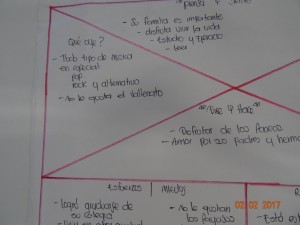 piensa y siente
- Su familia es importante
- disfruta vivir la vida
- Estudio y Ejercicio
- leer
Qué oye?
- Todo tipo de música
en especial
pop
rock y alternativo
- No le gusta el Vallenato
Dice y Hace
- Disfrutar de los
- Amor por sus padres y
Esfuerzos
Miedos
- logró graduarse de
su colegio
- No le gustan
los payasos
- Está es
02 02 2017